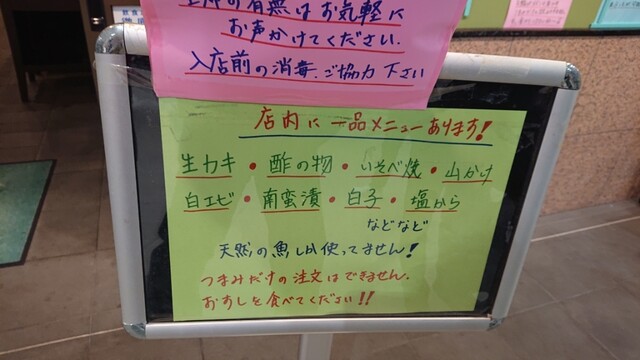 の有無はお気軽に
お声かけてください.
入店前の消毒、ご協力下さい
店内に一品メニューあります!
生カキ・酢の物・いそべ焼・山かけ
白エビ・南蛮漬・白子・塩から
などなど
天然の魚しか使ってません!
つまみだけの注文はできません.
おすしを食べてください!!